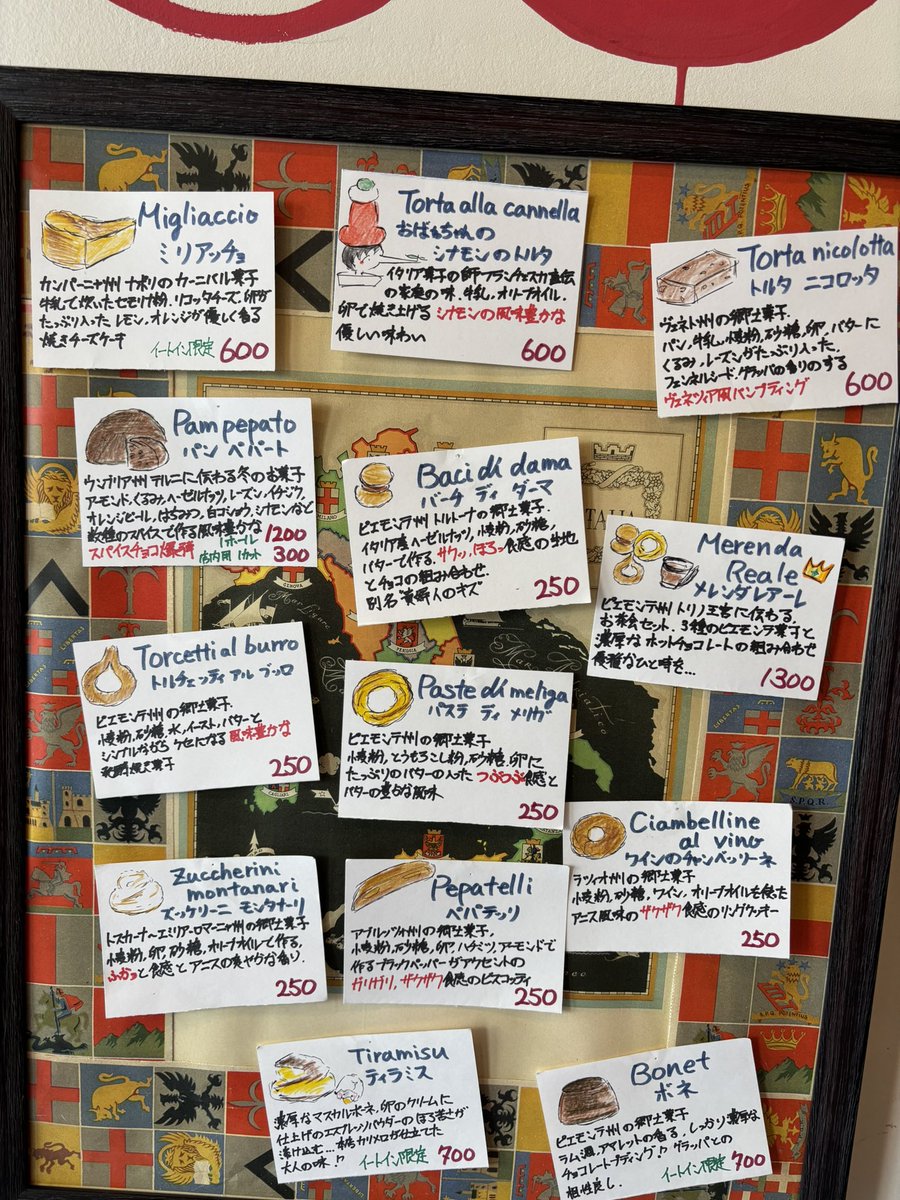 Migliaccio
ミリアッチョ
カンパーニャ州 ナポリのカーニバル菓子
牛乳で炊いたセモリナ粉、リコッタチーズ、卵が
たっぷり入った レモン、オレンジが優しく香る
焼きチーズケーキ
イートイン限定 600
Torta alla cannella
おばあちゃんの
シナモンのトルタ
イタリア菓子の師・フランチェスカ直伝
の家庭の味。牛乳、オリーブオイル、
卵で焼き上げる シナモンの風味豊かな
優しい味わい
600
Torta nicolotta
トルタ ニコロッタ
ヴェネト州の郷土菓子。
パン、牛乳、小麦粉、砂糖、卵、バターに
くるみ、レーズンがたっぷり入った、
フェンネルシード、グラッパの香りのする
ヴェネツィア風パンプディング
600
Pampepato
パン ペパート
ウンブリア州 テルニに伝わる冬のお菓子
アーモンド、くるみ、ヘーゼルナッツ、レーズン、イチジク、
オレンジピール、はちみつ、白コショウ、シナモンなど
数種のスパイスで作る風味豊かな
スパイスチョコ爆弾
1ホール 1200
店内用 1カット 300
Baci di dama
バーチ ディ ダーマ
ピエモンテ州 トルトーナの郷土菓子。
イタリア産ヘーゼルナッツ、小麦粉、砂糖、
バターで作る、サクッ、ほろっ食感の生地
とチョコの組み合わせ。
別名"貴婦人のキス"
250
Merenda
Reale
メレンダ レアーレ
ピエモンテ州 トリノ王宮に伝わる
お茶会セット。3種のピエモンテ菓子と
濃厚なホットチョコレートの組み合わせ
優雅なひと時を…
1300
Torcetti al burro
トルチェッティ アル ブッロ
ピエモンテ州の郷土菓子
小麦粉、砂糖、水、イースト、バターと
シンプルながら クセになる 風味豊かな
発酵焼き菓子
250
Paste di meliga
パステ ディ メリガ
ピエモンテ州の郷土菓子
小麦粉、とうもろこし粉、砂糖、卵に
たっぷりのバターの入った つぶつぶ食感と
バターの豊かな風味
250
Ciambelline
al vino
ワインのチャンベッリーネ
ラツィオ州の郷土菓子
小麦粉、砂糖、ワイン、オリーブオイルを使った
アニス風味のザクザク食感のリングクッキー
250
Zuccherini
montanari
ズッケリーニ モンタナーリ
トスカーナーエミリア・ロマーニャ州の郷土菓子
小麦粉、卵、砂糖、オリーブオイルで作る、
ふかっと食感とアニスの爽やかな香り。
250
Pepatelli
ペパテッリ
アブルッツォ州の郷土菓子。
小麦粉、砂糖、卵、ハチミツ、アーモンドで
作る ブラックペッパーがアクセントの
ガリガリ、ザクザク食感のビスコッティ
250
Tiramisu
ティラミス
濃厚なマスカルポーネ、卵のクリームに
仕上げのエスプレッソパウダーのほろ苦さが
溶け込む…
大人の味!?
イートイン限定 700
Bonet
ボネ
ピエモンテ州の郷土菓子
ラム酒、アマレットの香る、しっかり濃厚な
チョコレートプディング!? グラッパとの
相性良し。
イートイン限定 700